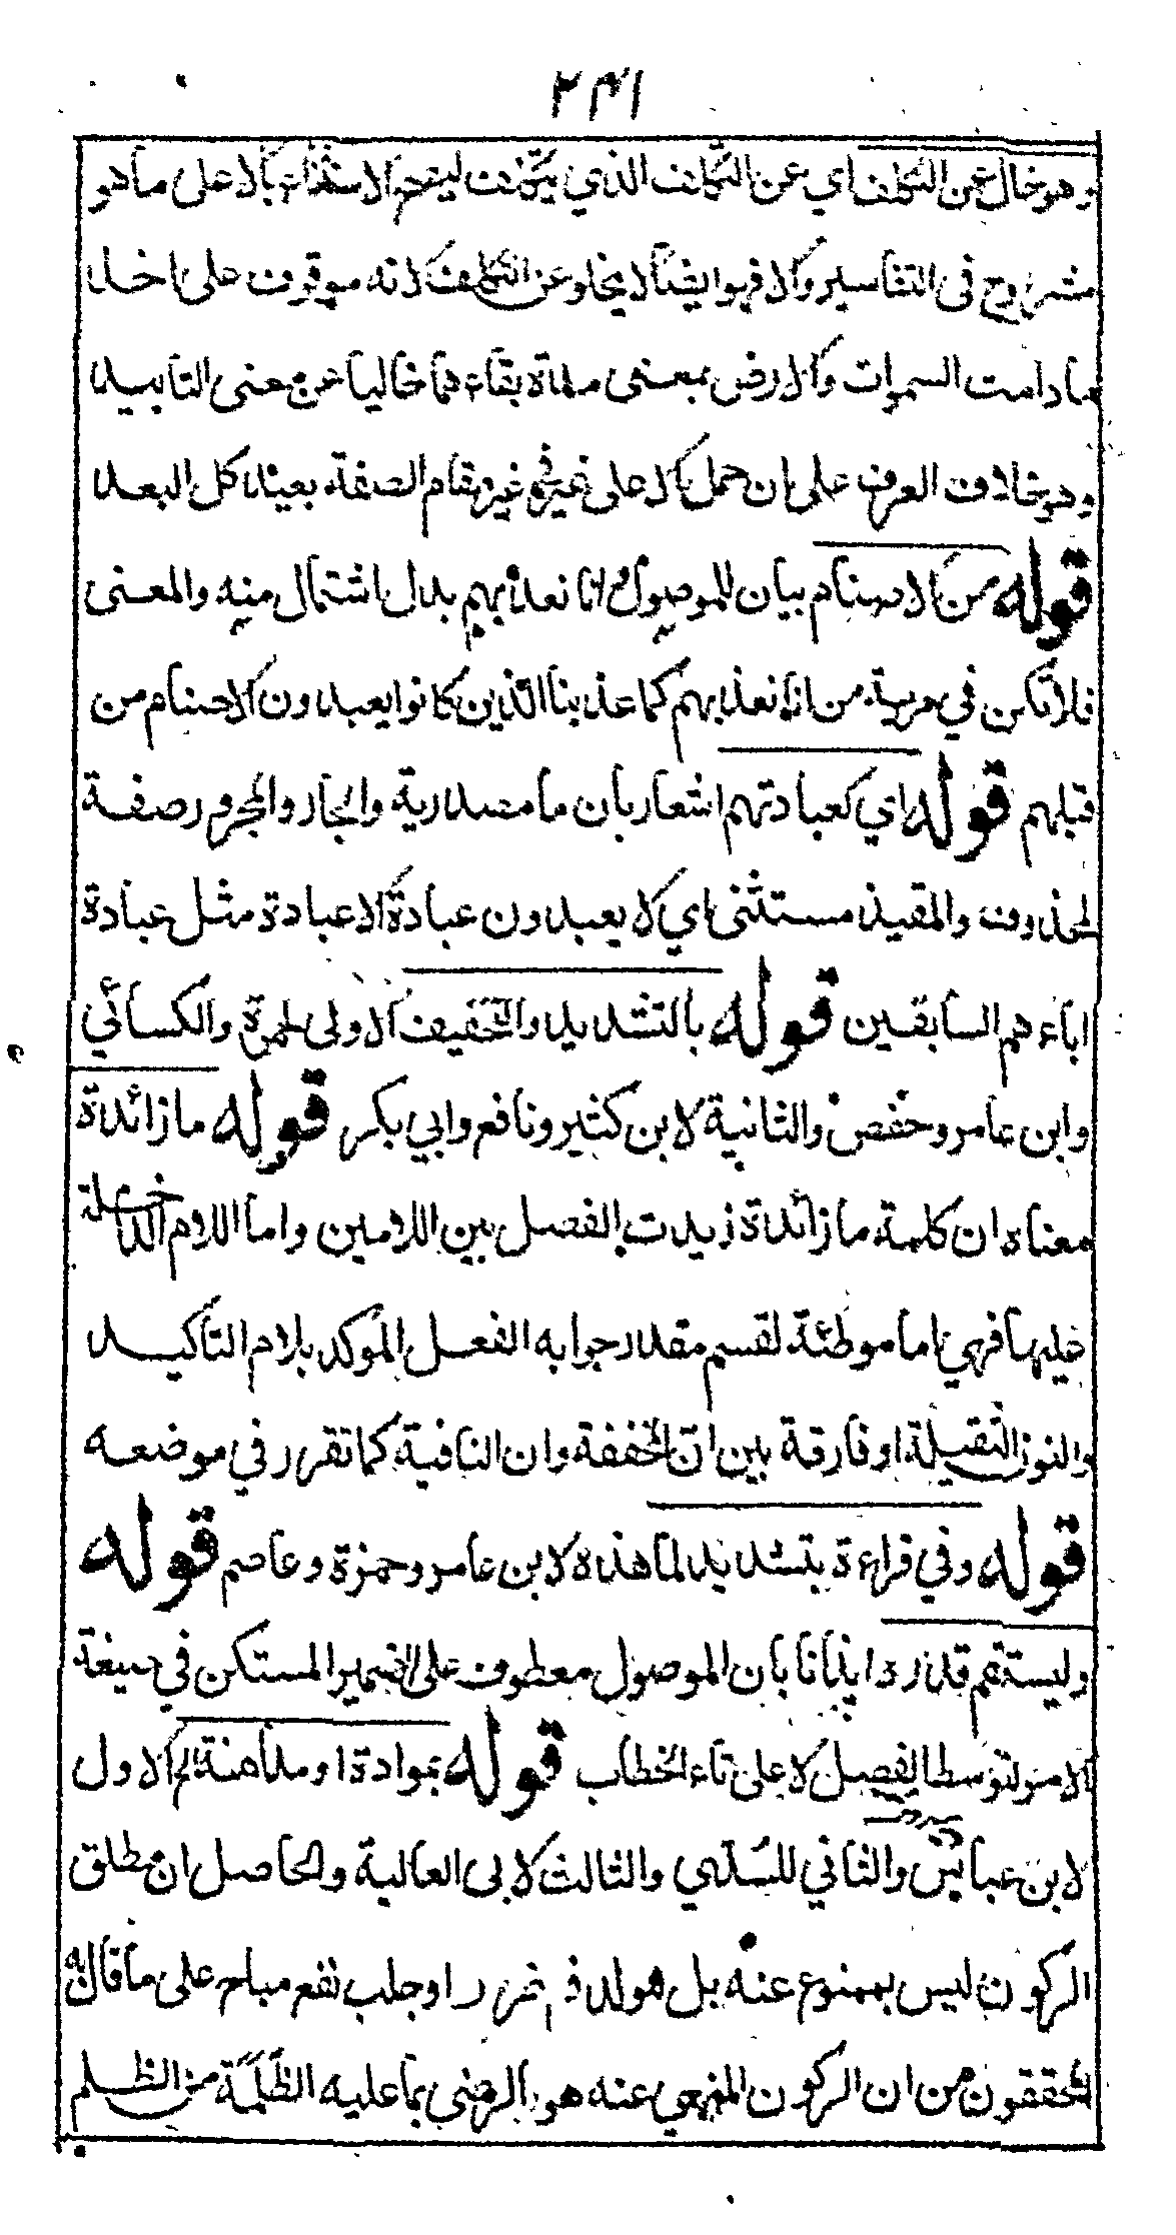 ٢٣١
وهو خال عن التكلف اي عن التكلف الذي يتكلف ليتم الاستثناء بالا على ما هو
مشروح في التفاسير والا فهو ايضا لا يخلو عن التكلف لانه موقوف على اخذ
ما دامت السموات والارض بمعنى مدة بقاءهما خاليا عن معنى التابيد
وهو خلاف العرف على ان حمل الا على غير في غير مقام الصفة بعيد كل البعد
قوله من الاصنام بيان للموصول وانا نعذبهم بدل اشتمال منه والمعنى
فلا تكن في مرية من انا نعذبهم كما عذبنا الذين كانوا يعبدون الاصنام من
قبلهم قوله اي كعبادتهم اشعار بان ما مصدرية والجار والمجرور صفة
لمحذوف والمقيد مستثنى اي لا يعبدون عبادة الا عبادة مثل عبادة
اباءهم السابقين قوله بالتشديد والتخفيف الاولى لحمزة والكسائي
وابن عامر وحفص والثانية لابن كثير ونافع وابي بكر قوله ما زائدة
معناه ان كلمة ما زائدة زيدت للفصل بين اللامين واما اللام الداخلة
عليها فهي اما موطئة لقسم مقدر جوابه الفعل الموكد بلام التاكيد
والنون الثقيلة او فارقة بين ان المخففة وان النافية كما تقرر في موضعه
قوله وفي قراءة بتشديد لما هذه لابن عامر وحمزة وعاصم قوله
وليستقم قدره ايذانا بان الموصول معطوف على الضمير المستكن في صيغة
الامر لتوسط الفصل لا على تاء الخطاب قوله بموادة او مداهنة الخ الاول
لابن عباس والثاني للسدي والثالث لابى العالية والحاصل ان مطلق
الركون ليس بممنوع عنه بل هو لدفع ضرر او جلب نفع مباح على ما قال به
المحققون من ان الركون المنهي عنه هو الرضى بما عليه الظلمة من الظلم